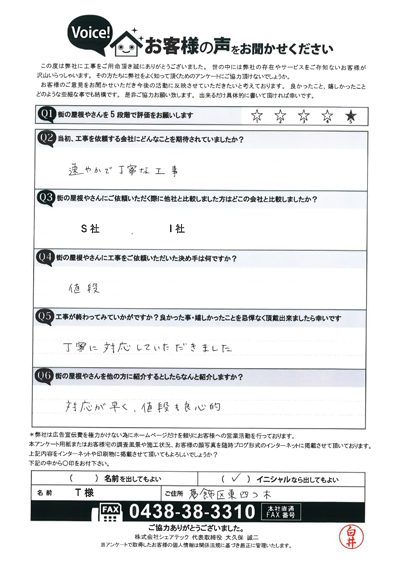 Voice!
お客様の声をお聞かせください
この度は弊社に工事をご用命頂き誠にありがとうございました。世の中には弊社の存在やサービスをご存知ないお客様が
沢山いらっしゃいます。その方たちに弊社をよく知って頂くためのアンケートにご協力頂けないでしょうか。
お客様のご意見をお聞かせいただき今後の活動に反映させていただきたいと考えております。良かったこと、嬉しかったこと
どのような些細な事でも結構です。是非ご協力お願い致します。出来るだけ具体的に書いて頂ければ幸いです。
Q1 街の屋根やさんを5段階で評価をお願いします ☆ ☆ ☆ ☆ ★
Q2 当初、工事を依頼する会社にどんなことを期待されていましたか?
速やかで丁寧な工事
Q3 街の屋根やさんにご依頼いただく際に他社と比較しました方はどこの会社と比較しましたか?
S社 . I社
Q4 街の屋根やさんに工事をご依頼いただいた決め手は何ですか?
値段
Q5 工事が終わってみていかがですか?良かった事・嬉しかったことを忌憚なく頂戴出来ましたら幸いです
丁寧に対応していただきました
Q6 街の屋根やさんを他の方に紹介するとしたらなんと紹介しますか?
対応が早く、値段も良心的
*弊社は広告宣伝費を極力かけない為にホームページだけを頼りにお客様への営業活動を行っております。
本アンケート用紙またはお客様宅の調査風景や施工状況、お客様の顔写真を随時ブログ形式のインターネットに掲載させて頂いております。
上記内容をインターネットや印刷物に掲載させて頂いてもよろしいでしょうか?
下記の中から○印をお付下さい。
( ) 名前を出してもよい ( ✓ ) イニシャルなら出してもよい
名前 T様 ご住所 葛飾区東四つ木
FAX 0438-38-3310 本社直通 FAX番号
ご協力ありがとうございました。
株式会社シェアテック 代表取締役 大久保 誠二
※アンケートで取得したお客様の個人情報は関係法規に基づき厳正に管理いたします。
白井